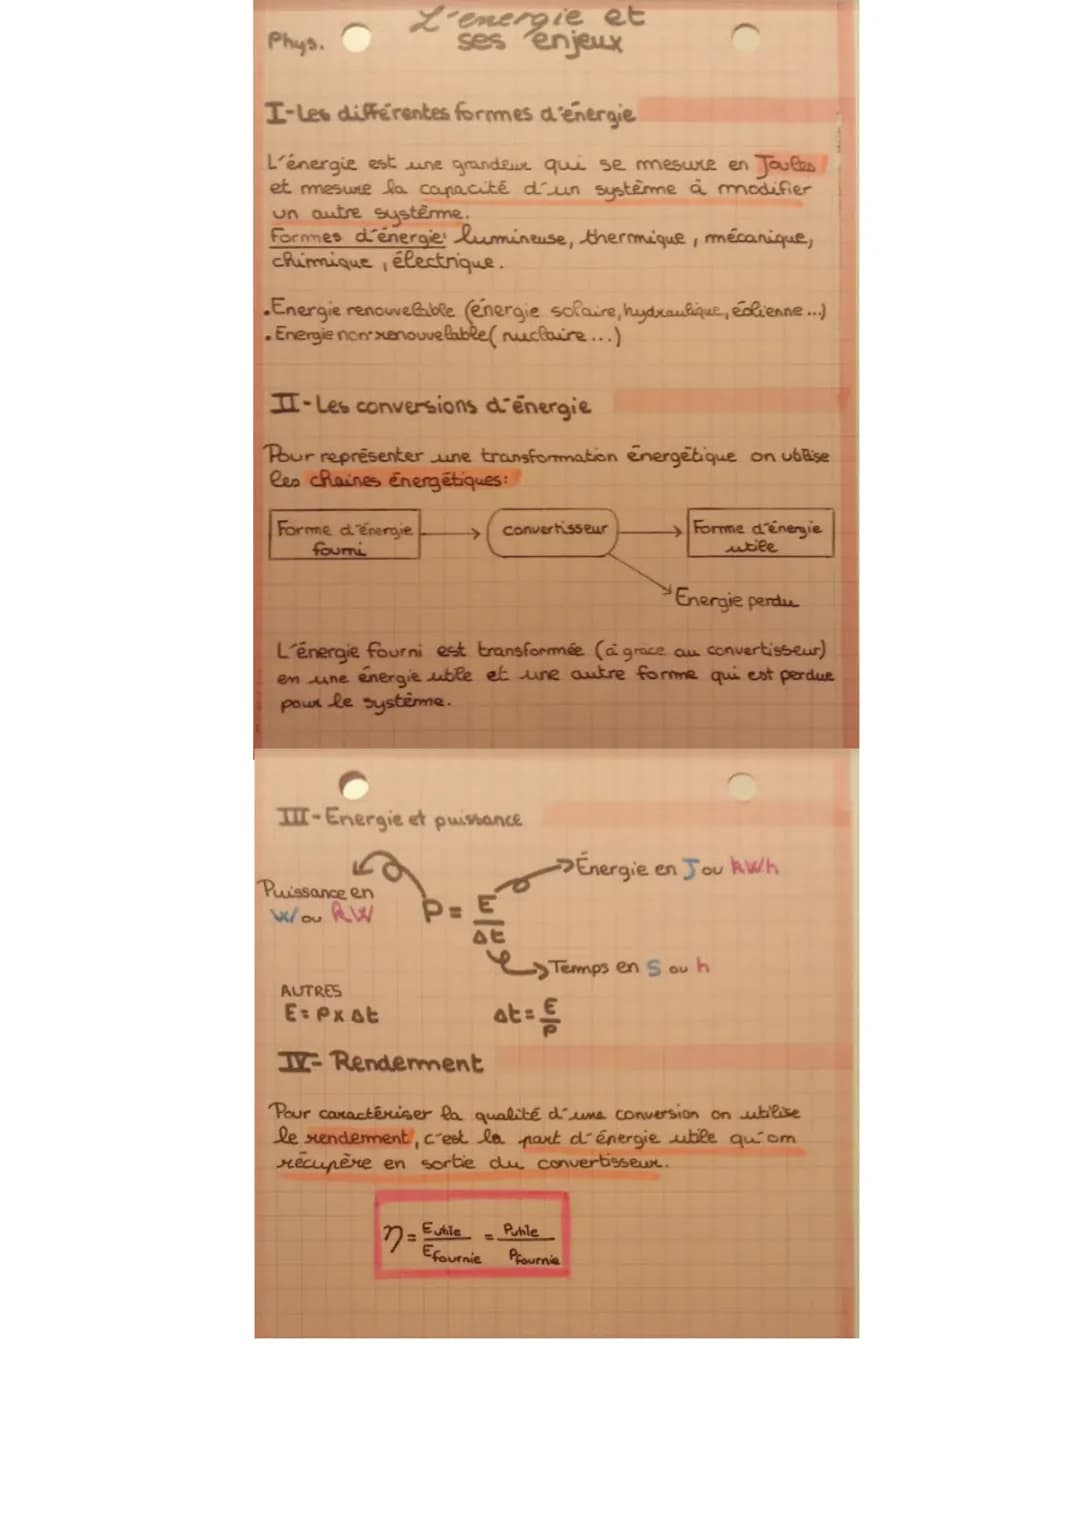 L'energie et
Phys. ses enjeux
I-Les différentes formes d'énergie
L'énergie est une grandeur qui se mesure en Joules
et mesure la capacité d'un système à modifier
un autre système.
Formes d'énergie: lumineuse, thermique, mécanique,
chimique, électrique.
.Energie renouvelable (énergie solaire, hydraulique, éolienne...)
.Energie non renouvelable( nuclaire...)
II-Les conversions d'énergie
Pour représenter une transformation énergétique on utilise
les chaines énergétiques:
Forme d'énergie fourni
convertisseur
Forme d'énergie utile
Energie perdu
L'énergie fourni est transformée (à grace au convertisseur)
en une énergie utile et une autre forme qui est perdue
pour le système.
III-Energie et puissance
Énergie en J ou kWh
Puissance en
W ou kW
P = E
Δt
Temps en S ou h
AUTRES
E = P x Δt
Δt = E
P
IV- Rendement
Pour caractériser la qualité d'une conversion on utilise
le rendement, c'est la part d'énergie utile qu'on
récupère en sortie du convertisseur.
η = Eutile = Putile
Efournie Pfournie